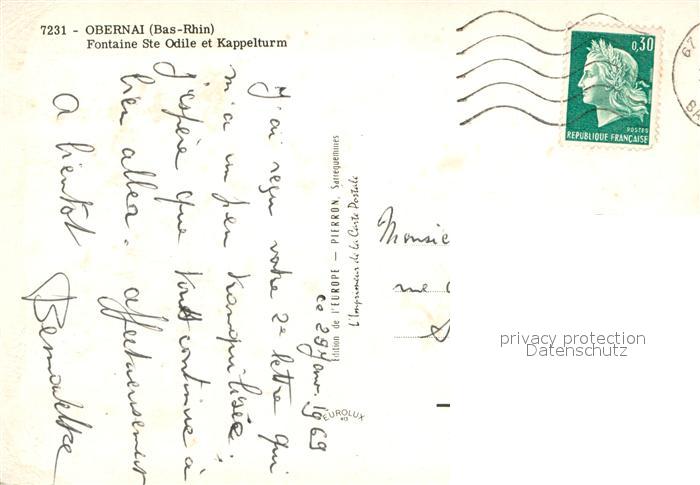 7231 - OBERNAI (Bas-Rhin)
Fontaine Ste Odile et Kappelturm
ce 28 Janv. 1969
J'ai reçu votre 2e lettre qui
m'a un peu tranquilisée.
J'espère que tout continue à
bien aller. affectueusement
A bientôt
Bernadette
Edition de l'EUROPE — PIERRON, Sarreguemines
L'Imprimeur de la Carte Postale
EUROLUX
0,30
POSTES
REPUBLIQUE FRANÇAISE
67
Monsie
rue
privacy protection
Datenschutz